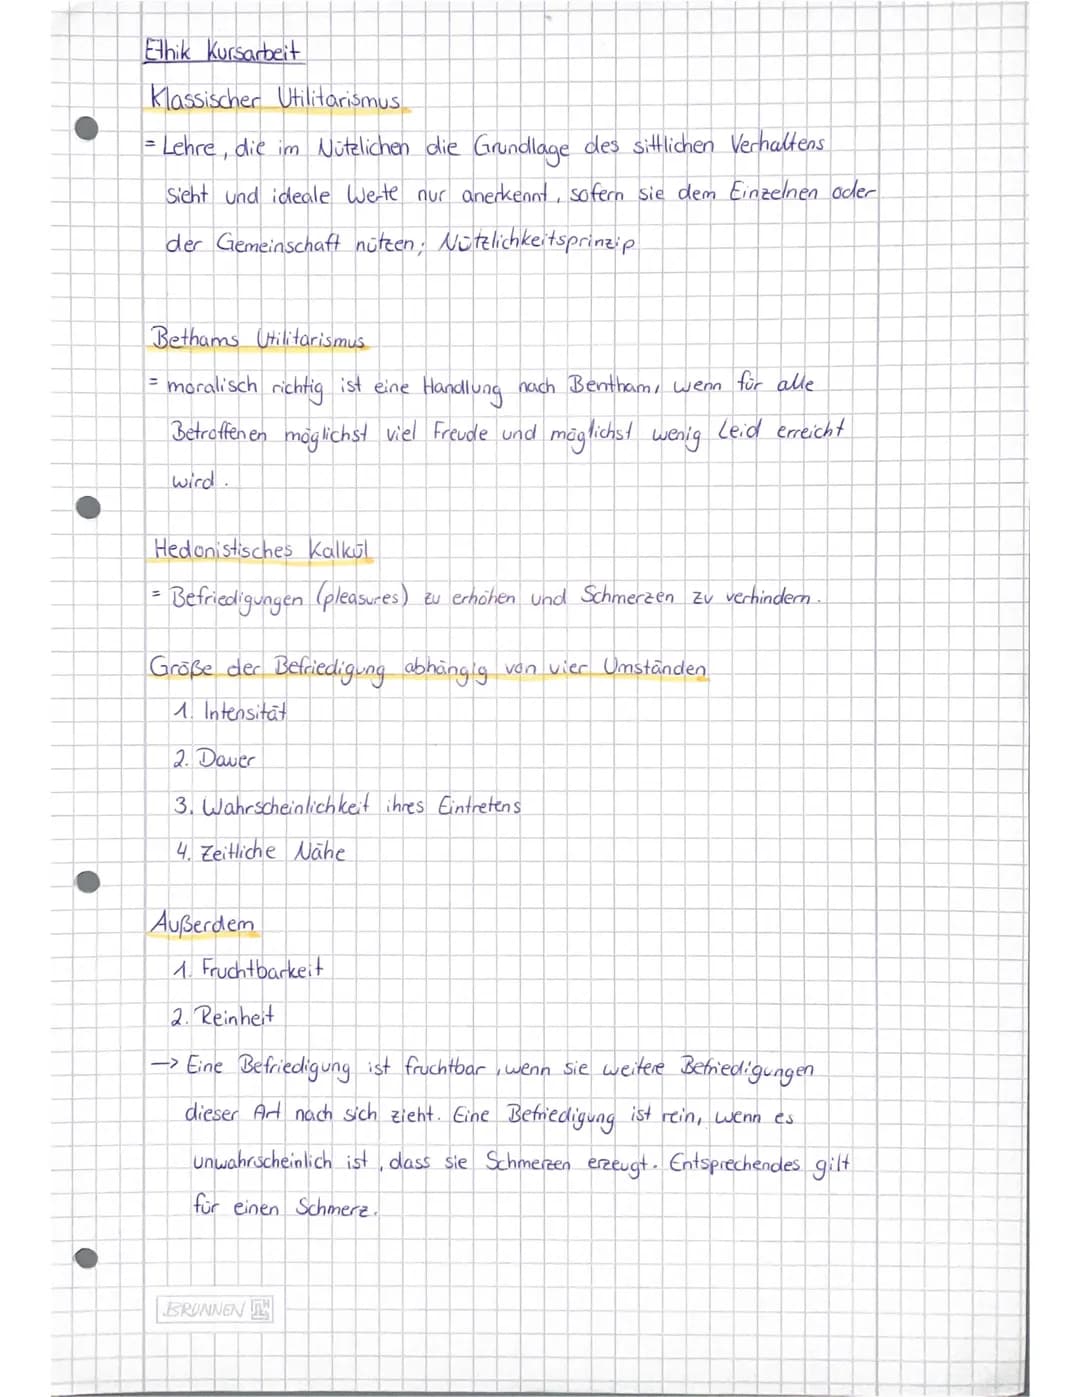 Ethik Kursarbeit
Klassischer Utilitarismus
= Lehre, die im Nützlichen die Grundlage des sittlichen Verhaltens
sieht und ideale Werte nur anerkennt, sofern sie dem Einzelnen oder
der Gemeinschaft nützen; Nützlichkeitsprinzip
Bethams Utilitarismus
= moralisch richtig ist eine Handlung nach Bentham, wenn für alle
Betroffenen möglichst viel Freude und möglichst wenig Leid erreicht
wird.
Hedonistisches Kalkül
= Befriedigungen (pleasures) zu erhöhen und Schmerzen zu verhindern.
Größe der Befriedigung abhängig von vier Umständen
1. Intensität
2. Dauer
3. Wahrscheinlichkeit ihres Eintretens
4. Zeitliche Nähe
Außerdem
1. Fruchtbarkeit
2. Reinheit
-> Eine Befriedigung ist fruchtbar, wenn sie weitere Befriedigungen
dieser Art nach sich zieht. Eine Befriedigung ist rein, wenn es
unwahrscheinlich ist, dass sie Schmerzen erzeugt. Entsprechendes gilt
für einen Schmerz.
BRUNNEN